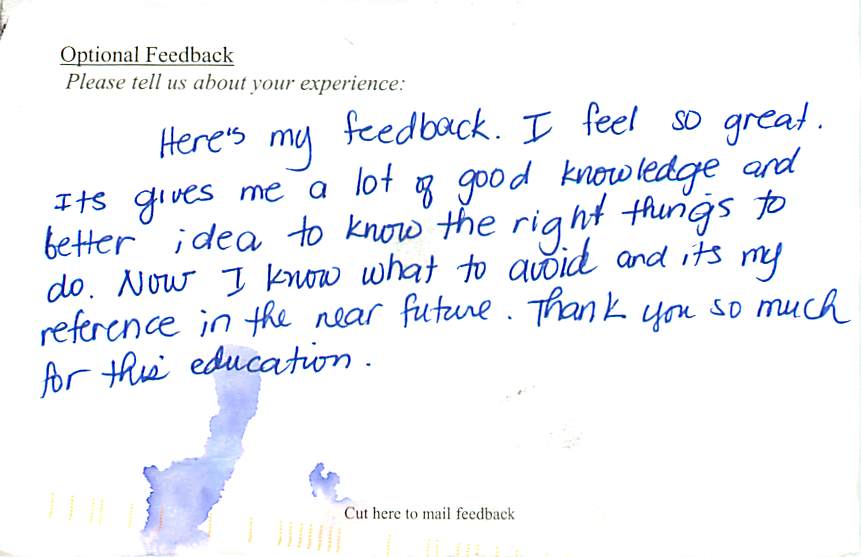 Optional Feedback
Please tell us about your experience:
Here's my feedback. I feel so great.
Its gives me a lot of good knowledge and
better idea to know the right things to
do. Now I know what to avoid and its my
reference in the near future. Thank you so much
for this education.
Cut here to mail feedback